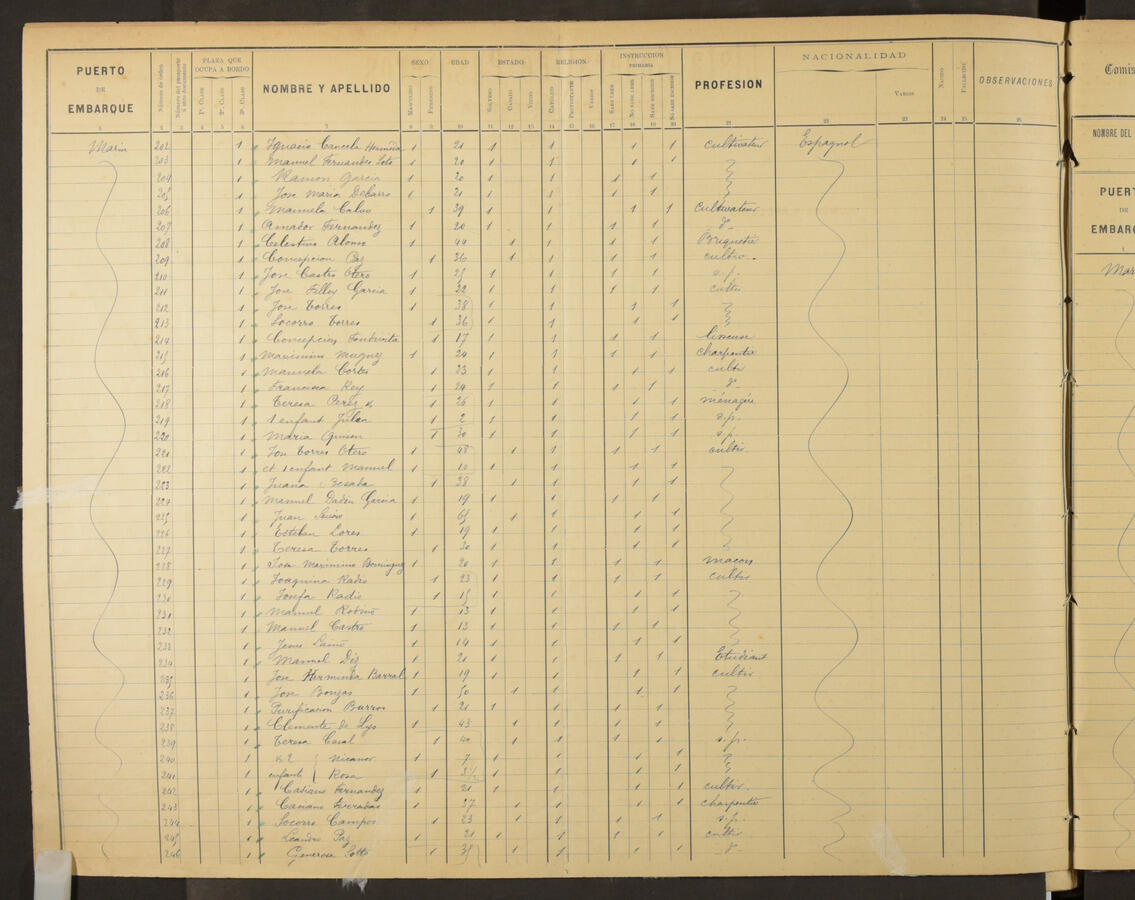 PUERTO DE EMBARQUE Número de órden Número del pasaporte ú otro documento PLAZA QUE OCUPA A BORDO 1ª CLASE 2ª CLASE 3ª CLASE NOMBRE Y APELLIDO SEXO MASCULINO FEMENINO EDAD ESTADO SOLTERO CASADO VIUDO RELIGION CATÓLICO PROTESTANTE VARIOS INSTRUCCION PRIMARIA SABE LEER NO SABE LEER SABE ESCRIBIR NO SABE ESCRIBIR PROFESION NACIONALIDAD VARIOS NACIDO FALLECIDO OBSERVACIONES
1 2 3 4 5 6 7 8 9 10 11 12 13 14 15 16 17 18 19 20 21 22 23 24 25 26
Marin 202 1 Ignacio Cancela Hermida 1 21 1 1 1 1 cultivateur Espagnol
203 1 Manuel Fernandez Soto 1 20 1 1 1 1
204 1 Ramon Garcia 1 20 1 1 1 1
205 1 Jose Maria 1 21 1 1 1 1
206 1 Manuela Calvo 1 39 1 1 1 1 cultivateur
207 1 Amador Fernandez 1 20 1 1 1 1 d°
208 1 Celestino Alonso 1 44 1 1 1 1 Briquetier
209 1 Concepcion Paz 1 36 1 1 1 1 cultiv.
210 1 Jose Castro Otero 1 25 1 1 1 1 s.p.
211 1 Jose Garcia 1 22 1 1 1 1 cultiv
212 1 Jose Torres 1 38 1 1 1 1
213 1 Socorro Torres 1 36 1 1 1 1
214 1 Concepcion 1 17 1 1 1 1
215 1 Maximino 1 24 1 1 1 1 charpentier
216 1 Manuela Cortes 1 23 1 1 1 1 cultiv
217 1 Francisca Rey 1 24 1 1 1 1 d°
218 1 Teresa Perez 1 26 1 1 1 1 ménagère
219 1 1 enfant Julia 1 2 1 1 1 1 s.p.
220 1 Maria 1 30 1 1 1 1 s.p.
221 1 Jose Torres Otero 1 48 1 1 1 1 cultiv.
222 1 et 1 enfant Manuel 1 10 1 1 1 1
223 1 Juana Besada 1 38 1 1 1 1
224 1 Manuel Garcia 1 19 1 1 1 1
225 1 Juan 1 65 1 1 1 1
226 1 Esteban Lores 1 19 1 1 1 1
227 1 Teresa Torres 1 30 1 1 1 1
228 1 Jose Maximino Dominguez 1 20 1 1 1 1 macon
229 1 Joaquina Radio 1 23 1 1 1 1 cultiv
230 1 Josefa Radio 1 15 1 1 1 1
231 1 Manuel 1 13 1 1 1 1
232 1 Manuel Castro 1 13 1 1 1 1
233 1 Jesus 1 14 1 1 1 1
234 1 Manuel Diz 1 21 1 1 1 1 Etudiant
235 1 Jose Herminda Barral 1 19 1 1 1 1 cultiv
236 1 Jose Bonzas 1 50 1 1 1 1
237 1 Purificacion Burros 1 21 1 1 1 1
238 1 Clemente de Lys 1 43 1 1 1 1
239 1 Teresa Casal 1 40 1 1 1 1 s.p.
240 1 & 2 Nicanor 1 7 1 1 1 1
241 1 enfants Rosa 1 3½ 1 1 1 1
242 1 Casiano Fernandez 1 21 1 1 1 1 cultiv.
243 1 Ferradas 1 27 1 1 1 1 charpentier
244 1 Socorro Campos 1 23 1 1 1 1 s.p.
245 1 Leandro Paz 1 21 1 1 1 1 cultiv
246 1 Generosa Sotto 1 35 1 1 1 1 d°
Comis
NOMBRE DEL
PUERT
DE
EMBARQ
Mar